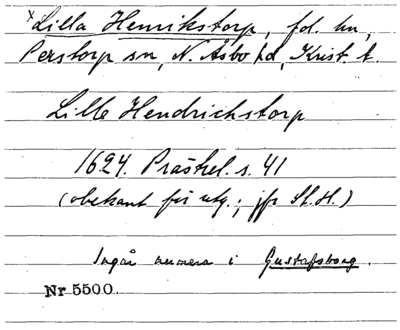 ×Lilla Henrikstorp, fd. hn,
Perstorp sn, N. Åsbo hd, Krist. l.
Lille Hendrichstorp
1624. Prästrel. s. 41
(obekant för utg.; jfr St. H.)
Ingår numera i Gustafsborg.
Nr 5500.